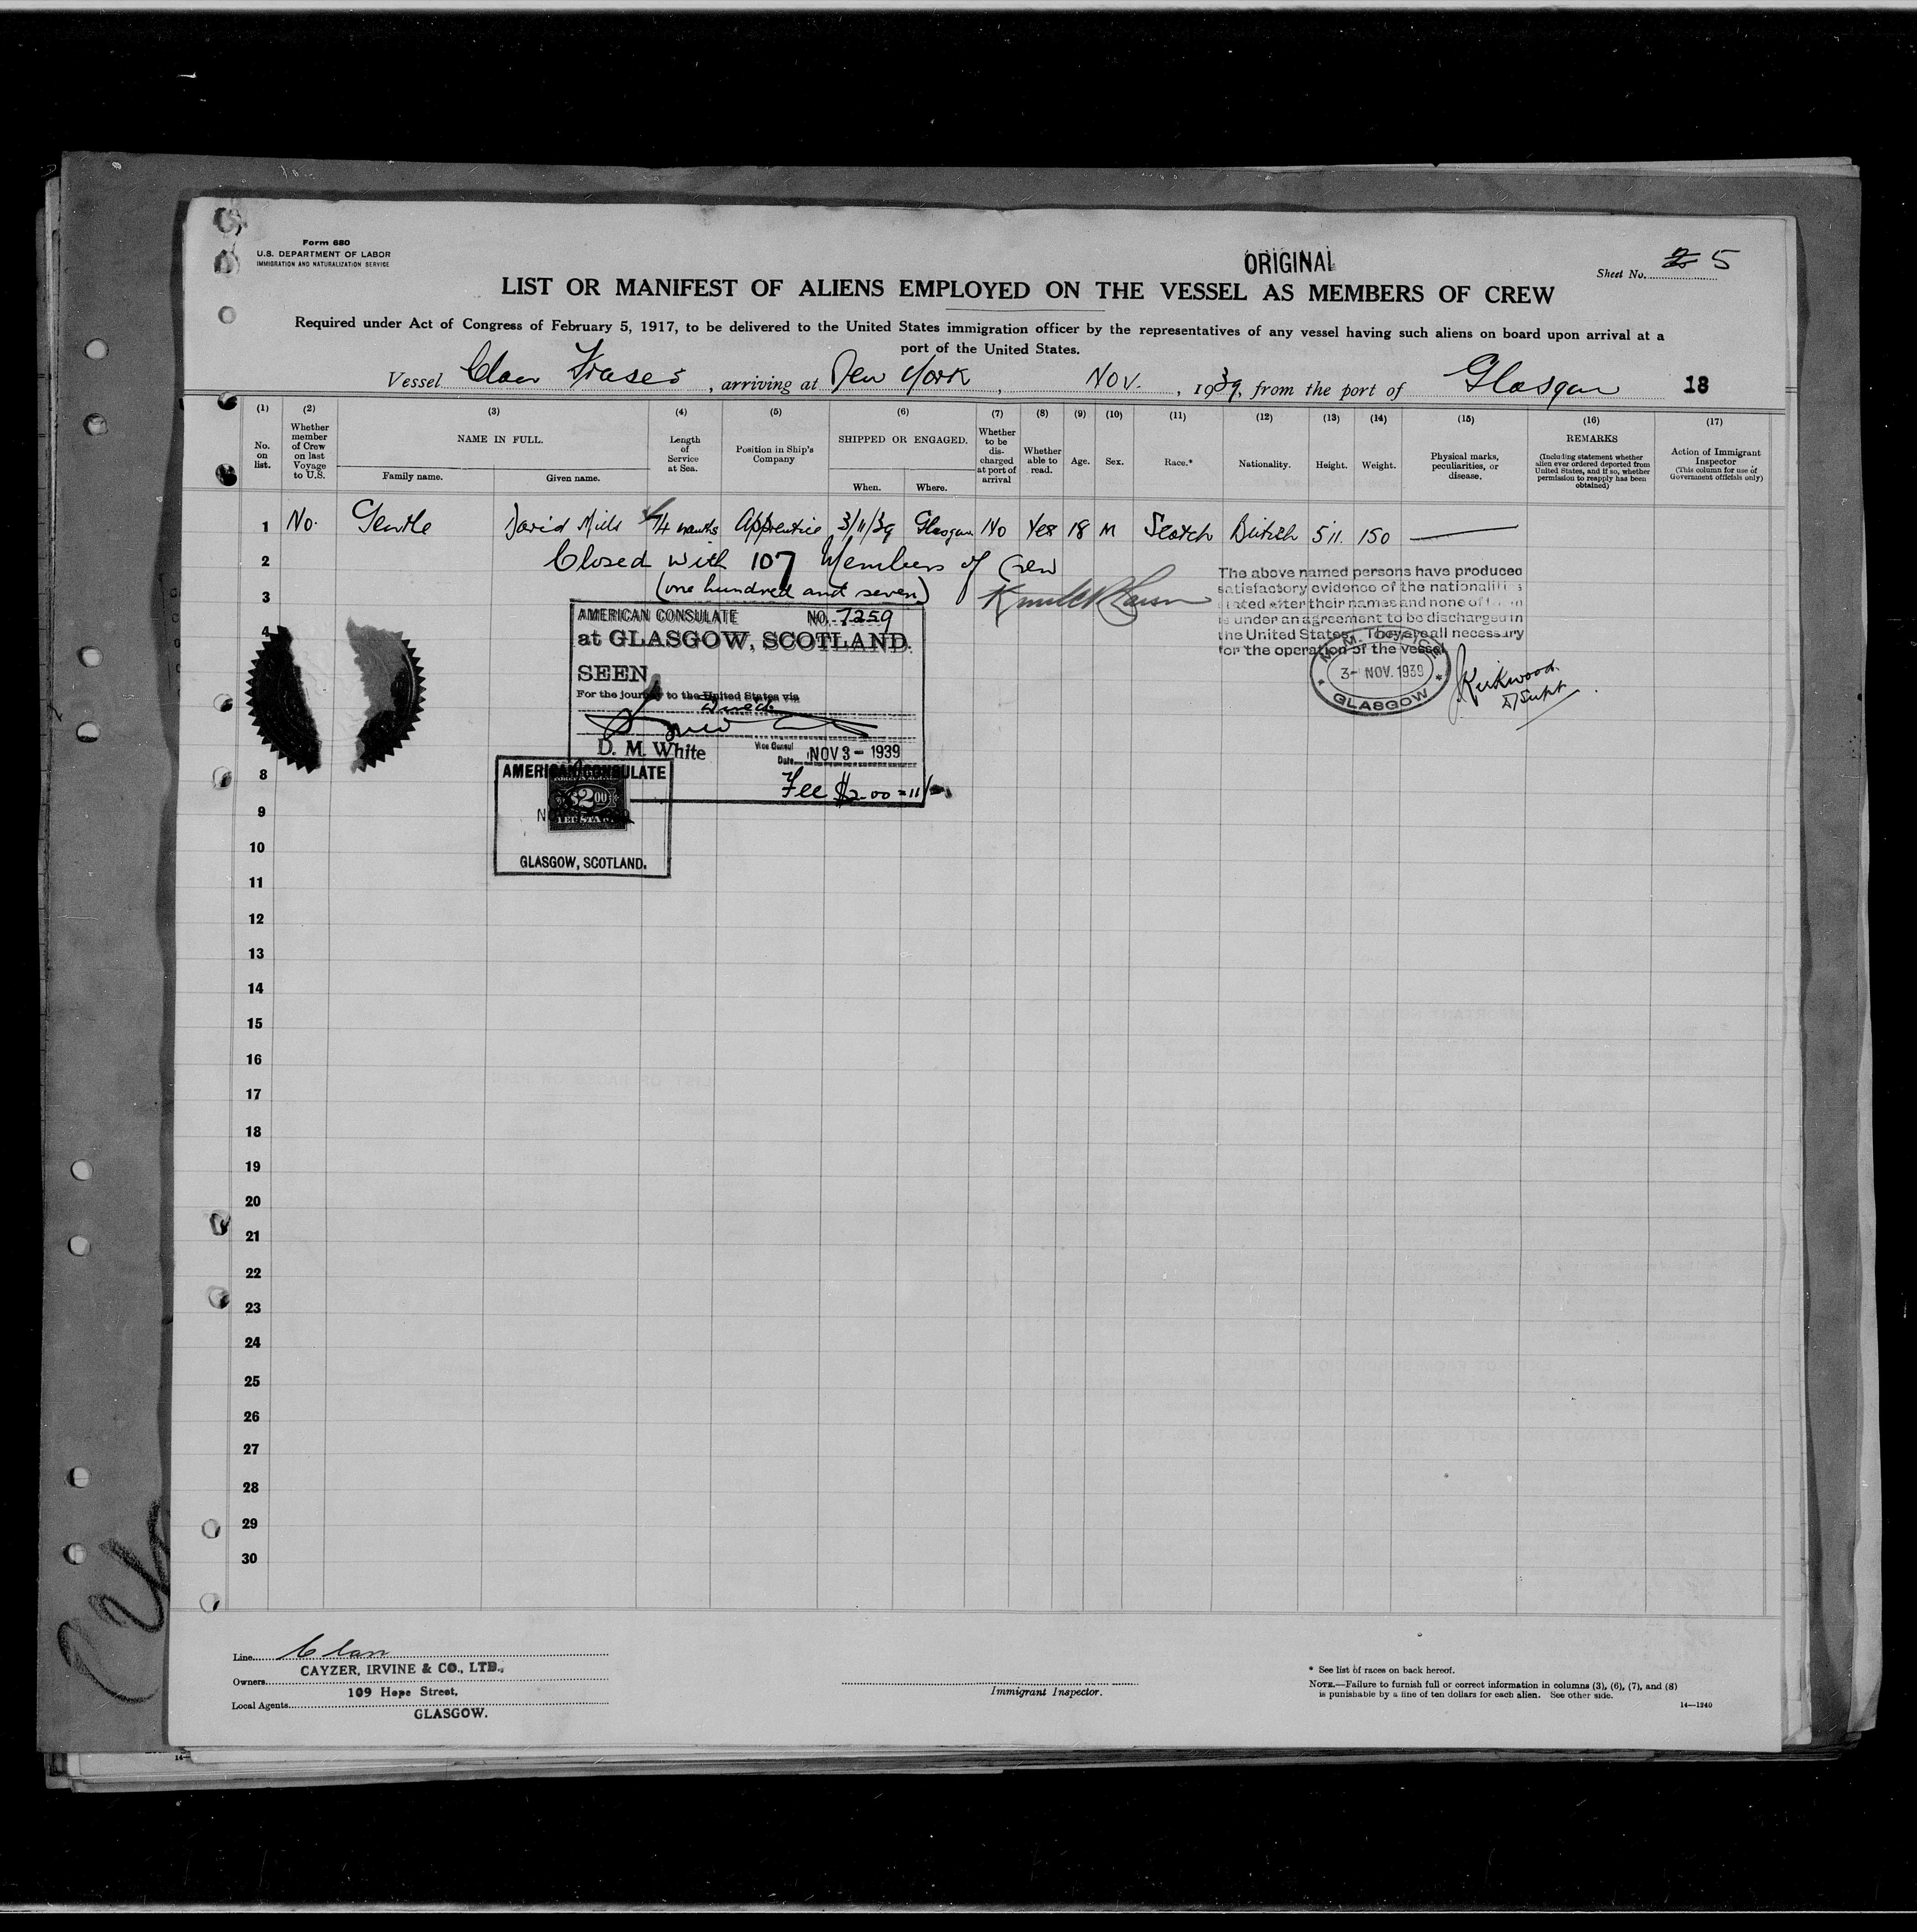 Form 680
U.S. DEPARTMENT OF LABOR
IMMIGRATION AND NATURALIZATION SERVICE
ORIGINAL
Sheet No. 5
LIST OR MANIFEST OF ALIENS EMPLOYED ON THE VESSEL AS MEMBERS OF CREW
Required under Act of Congress of February 5, 1917, to be delivered to the United States immigration officer by the representatives of any vessel having such aliens on board upon arrival at a
port of the United States.
Vessel Clan Fraser, arriving at New York, Nov., 1939, from the port of Glasgow 18
(1) (2) (3) (4) (5) (6) (7) (8) (9) (10) (11) (12) (13) (14) (15) (16) (17)
No. on list.
Whether member of Crew on last Voyage to U.S.
NAME IN FULL.
Family name. Given name.
Length of Service at Sea.
Position in Ship's Company
SHIPPED OR ENGAGED.
When. Where.
Whether to be discharged at port of arrival
Whether able to read.
Age.
Sex.
Race.*
Nationality.
Height.
Weight.
Physical marks, peculiarities, or disease.
REMARKS
(Including statement whether alien ever ordered deported from United States, and if so, whether permission to reapply has been obtained)
Action of Immigrant Inspector
(This column for use of Government officials only)
1 No. Gentle David Mills 4 months Apprentice 3/11/39 Glasgow No Yes 18 M Scotch British 5'11. 150
2 Closed with 107 Members of Crew
3 (one hundred and seven)
The above named persons have produced
satisfactory evidence of the nationalities
stated after their names and none of them
is under an agreement to be discharged in
the United States. They are all necessary
for the operation of the vessel
4
AMERICAN CONSULATE NO. 7259
at GLASGOW, SCOTLAND.
SEEN
For the journey to the United States via
Direct
D. M. White
Vice Consul
Date NOV 3 - 1939
Fee $2.00 = 11/-
3 - NOV. 1939
GLASGOW
Kirkwood
D/Supt
AMERICAN CONSULATE
$2 00
GLASGOW, SCOTLAND.
8
9
10
11
12
13
14
15
16
17
18
19
20
21
22
23
24
25
26
27
28
29
30
Line Clan
Owners CAYZER, IRVINE & CO., LTD.,
109 Hope Street,
Local Agents GLASGOW.
Immigrant Inspector.
* See list of races on back hereof.
NOTE.—Failure to furnish full or correct information in columns (3), (6), (7), and (8)
is punishable by a fine of ten dollars for each alien. See other side.
14—1240